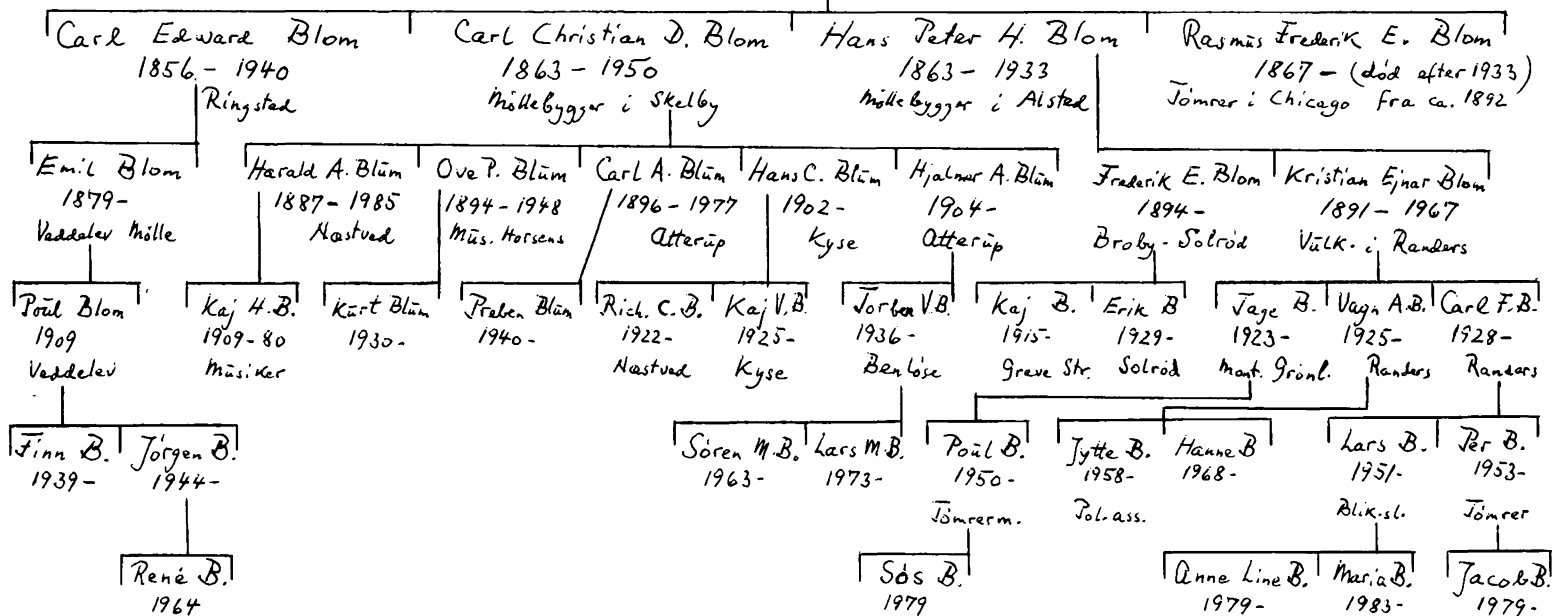 Carl Edward Blom
1856 - 1940
Ringsted
Carl Christian D. Blom
1863 - 1950
Möllebygger i Skelby
Hans Peter H. Blom
1863 - 1933
Möllebygger i Alsted
Rasmus Frederik E. Blom
1867 - (död efter 1933)
Tömrer i Chicago fra ca. 1892
Emil Blom
1879-
Veddelev Mölle
Harald A. Blūm
1887 - 1985
Næstved
Ove P. Blūm
1894 - 1948
Mūs. Horsens
Carl A. Blūm
1896 - 1977
Atterūp
Hans C. Blūm
1902 -
Kyse
Hjalmar A. Blūm
1904 -
Atterūp
Frederik E. Blom
1894 -
Broby - Solröd
Kristian Ejnar Blom
1891 - 1967
Vūlk. i Randers
Poūl Blom
1909
Veddelev
Kaj H.B.
1909-80
Mūsiker
Kūrt Blūm
1930-
Preben Blūm
1940-
Rich. C.B.
1922-
Næstved
Kaj V.B.
1925-
Kyse
Torben V.B.
1936-
Benlöse
Kaj B.
1915-
Greve Str.
Erik B
1929-
Solröd
Tage B.
1923-
Mont. Grönl.
Vagn A.B.
1925-
Randers
Carl F.B.
1928-
Randers
Finn B.
1939-
Jörgen B.
1944-
Sören M.B.
1963-
Lars M.B.
1973-
Poūl B.
1950-
Tömrerm.
Jytte B.
1958-
Pol. ass.
Hanne B
1968-
Lars B.
1951-
Blik.sl.
Per B.
1953-
Tömrer
René B.
1964
Sös B.
1979
Anne Line B.
1979-
Maria B.
1983-
Jacob B.
1979-